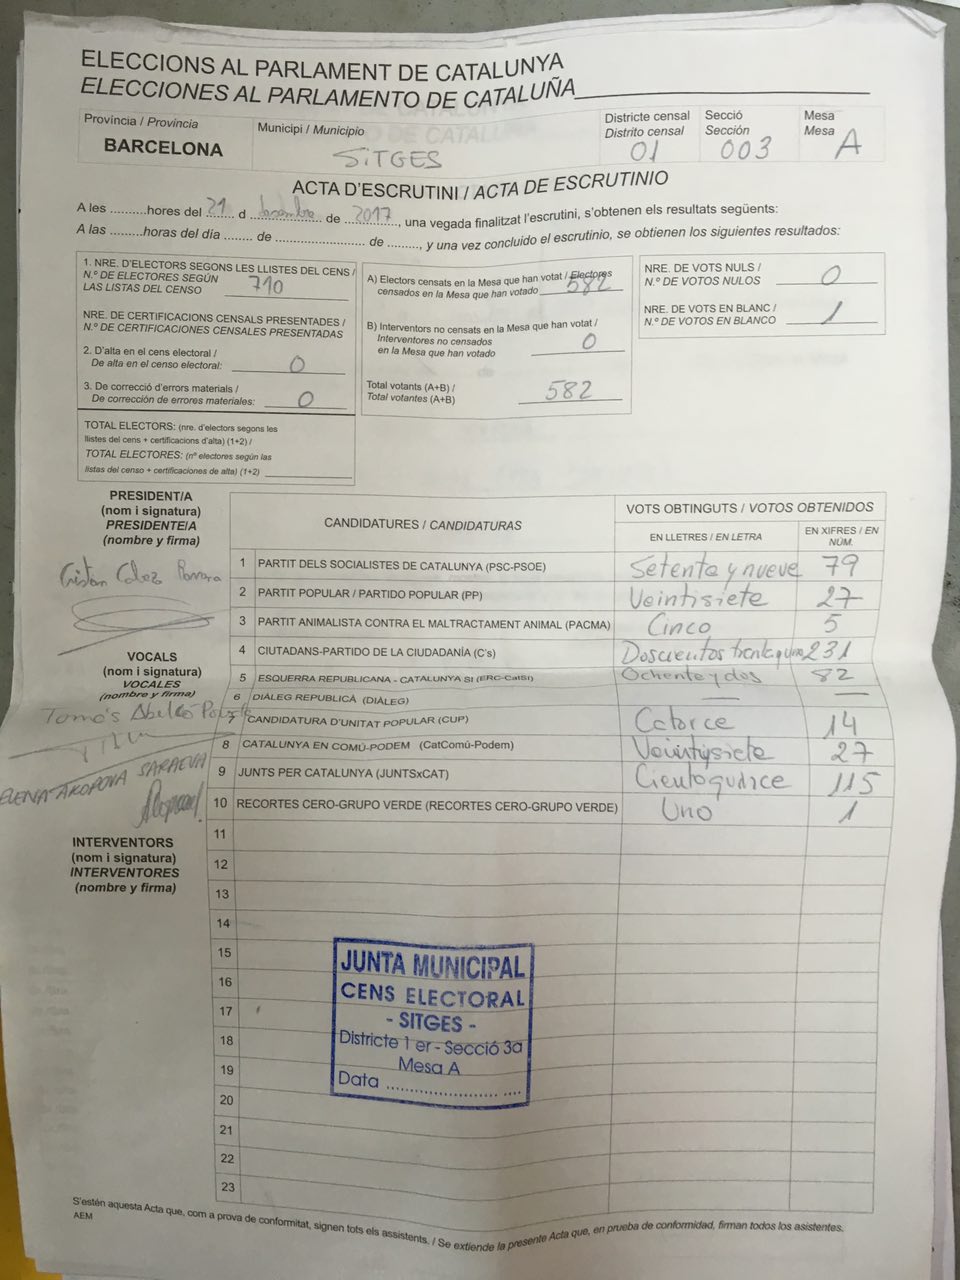 ELECCIONS AL PARLAMENT DE CATALUNYA
ELECCIONES AL PARLAMENTO DE CATALUÑA
Província / Provincia
BARCELONA
Municipi / Municipio
SITGES
Districte censal
Distrito censal
01
Secció
Sección
003
Mesa
Mesa
A
ACTA D'ESCRUTINI / ACTA DE ESCRUTINIO
A les ..........hores del 21 d desembre de 2017, una vegada finalitzat l'escrutini, s'obtenen els resultats següents:
A las ..........horas del día ........ de ......................... de ........., y una vez concluido el escrutinio, se obtienen los siguientes resultados:
1. NRE. D'ELECTORS SEGONS LES LLISTES DEL CENS /
N.º DE ELECTORES SEGÚN
LAS LISTAS DEL CENSO 710
NRE. DE CERTIFICACIONS CENSALS PRESENTADES /
N.º DE CERTIFICACIONES CENSALES PRESENTADAS
2. D'alta en el cens electoral /
De alta en el censo electoral: 0
3. De correcció d'errors materials /
De corrección de errores materiales: 0
TOTAL ELECTORS: (nre. d'electors segons les
llistes del cens + certificacions d'alta) (1+2) /
TOTAL ELECTORES: (nº electores según las
listas del censo + certificaciones de alta) (1+2)
A) Electors censats en la Mesa que han votat / Electores
censados en la Mesa que han votado 582
B) Interventors no censats en la Mesa que han votat /
Interventores no censados
en la Mesa que han votado 0
Total votants (A+B) /
Total votantes (A+B) 582
NRE. DE VOTS NULS /
N.º DE VOTOS NULOS 0
NRE. DE VOTS EN BLANC /
N.º DE VOTOS EN BLANCO 1
PRESIDENT/A
(nom i signatura)
PRESIDENTE/A
(nombre y firma)
VOCALS
(nom i signatura)
VOCALES
(nombre y firma)
Tomás
ELENA SARAEVA
INTERVENTORS
(nom i signatura)
INTERVENTORES
(nombre y firma)
CANDIDATURES / CANDIDATURAS
VOTS OBTINGUTS / VOTOS OBTENIDOS
EN LLETRES / EN LETRA
EN XIFRES / EN NÚM.
1 PARTIT DELS SOCIALISTES DE CATALUNYA (PSC-PSOE) Setenta y nueve 79
2 PARTIT POPULAR / PARTIDO POPULAR (PP) Veintisiete 27
3 PARTIT ANIMALISTA CONTRA EL MALTRACTAMENT ANIMAL (PACMA) Cinco 5
4 CIUTADANS-PARTIDO DE LA CIUDADANÍA (C's) Doscientos treinta y uno 231
5 ESQUERRA REPUBLICANA - CATALUNYA SI (ERC-CatSI) Ochenta y dos 82
6 DIÀLEG REPUBLICÀ (DIÀLEG) — —
7 CANDIDATURA D'UNITAT POPULAR (CUP) Catorce 14
8 CATALUNYA EN COMÚ-PODEM (CatComú-Podem) Veintisiete 27
9 JUNTS PER CATALUNYA (JUNTSxCAT) Ciento quince 115
10 RECORTES CERO-GRUPO VERDE (RECORTES CERO-GRUPO VERDE) Uno 1
11
12
13
14
15
16
17
18
19
20
21
22
23
JUNTA MUNICIPAL
CENS ELECTORAL
- SITGES -
Districte 1 er - Secció 3a
Mesa A
Data ........................
S'estén aquesta Acta que, com a prova de conformitat, signen tots els assistents. / Se extiende la presente Acta que, en prueba de conformidad, firman todos los asistentes.
AEM